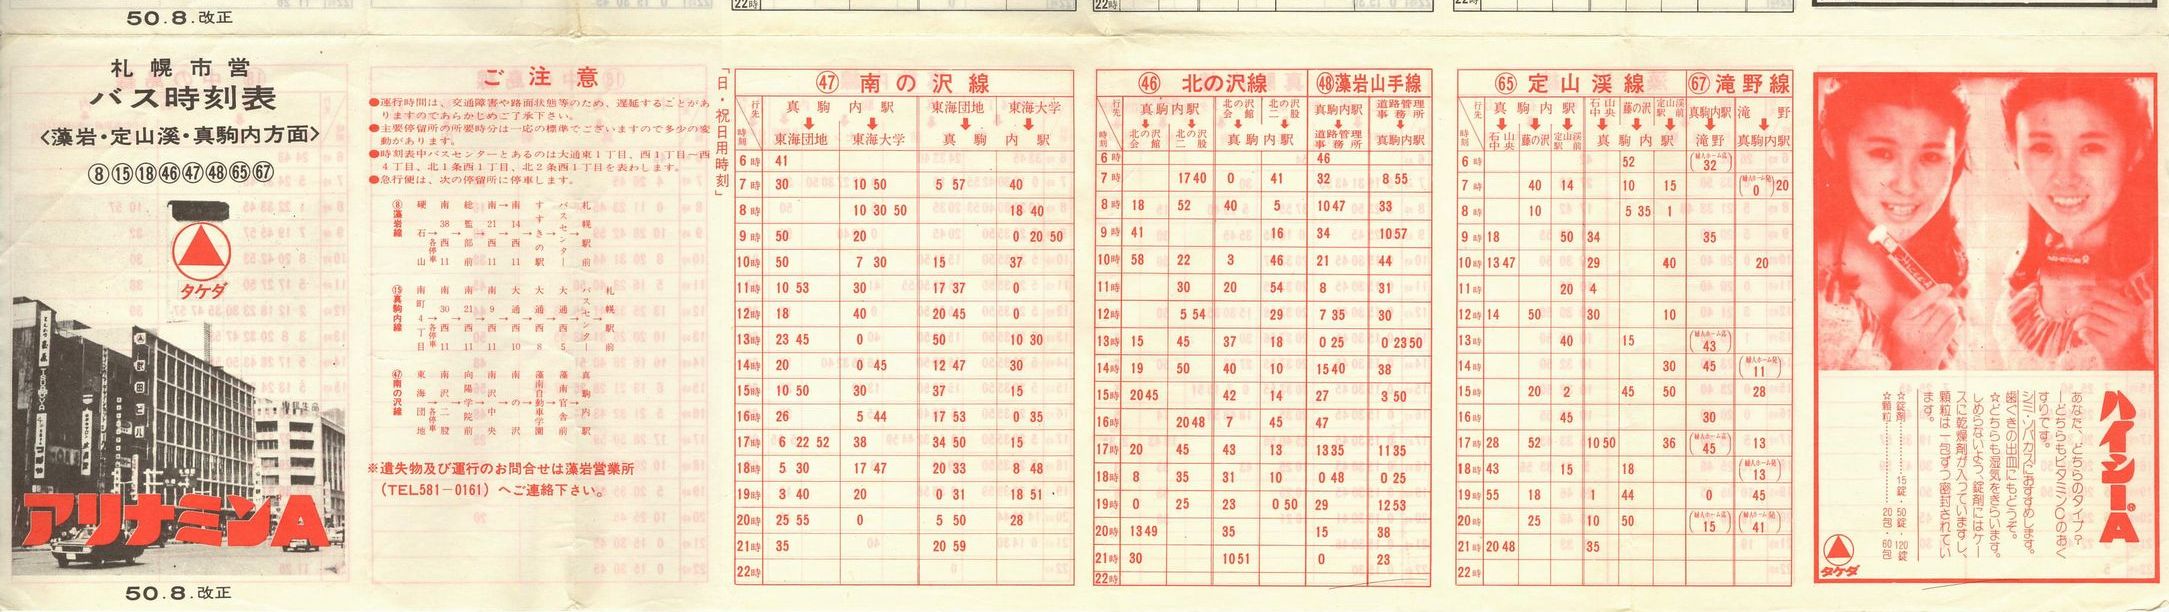 50.8.改正
22時
22時
22時
札幌市営
バス時刻表
<藻岩・定山溪・真駒内方面>
⑧⑮⑱㊻㊼㊽65 67
タケダ
アリナミンA
50.8.改正
ご注意
●運行時間は、交通障害や路面状態等のため、遅延することがあ
りますのであらかじめご了承下さい。
●主要停留所の所要時分は一応の標準でございますので多少の変
動があります。
●時刻表中バスセンターとあるのは大通東1丁目、西1丁目〜西
4丁目、北1条西1丁目、北2条西1丁目を表わします。
●急行便は、次の停留所に停車します。
⑧藻岩線
硯石山→各停車→南38西11→総監部前→南21西11→南14西11→すすきの駅→バスセンター→札幌駅前
⑮真駒内線
南町4丁目→各停車→南30西11→南21西11→南9西11→大通西10→大通西8→大通西5→バスセンター→札幌駅前
㊼南の沢線
東海団地→各停車→南沢二股→向陽学院前→南沢中央→南の沢→藻南自動車学園→藻南官舎前→真駒内駅
※遺失物及び運行のお問合せは藻岩営業所
(TEL581-0161)へご連絡下さい。
「日・祝日用時刻」
㊼ 南の沢線
行先 時刻
真駒内駅 東海団地 東海大学
東海団地 東海大学 真駒内駅
6時 41
7時 30 | 10 50 | 5 57 | 40
8時 | 10 30 50 | | 18 40
9時 50 | 20 | | 0 20 50
10時 50 | 7 30 | 15 | 37
11時 10 53 | 30 | 17 37 | 0
12時 18 | 40 | 20 45 | 0
13時 23 45 | 0 | 50 | 10 30
14時 20 | 0 45 | 12 47 | 30
15時 10 50 | 30 | 37 | 15
16時 26 | 5 44 | 17 53 | 0 35
17時 6 22 52 | 38 | 34 50 | 15
18時 5 30 | 17 47 | 20 33 | 8 48
19時 3 40 | 20 | 0 31 | 18 51
20時 25 55 | 0 | 5 50 | 28
21時 35 | | 20 59
22時
㊻ 北の沢線 ㊽藻岩山手線
行先 時刻
真駒内駅 北の沢会館 北の沢二股 真駒内駅 道路管理事務所
北の沢会館 北の沢二股 真駒内駅 道路管理事務所 真駒内駅
6時 | | | | 46
7時 | 17 40 | 0 | 41 | 32 | 8 55
8時 18 | 52 | 40 | 5 | 10 47 | 33
9時 41 | | | 16 | 34 | 10 57
10時 58 | 22 | 3 | 46 | 21 | 44
11時 | 30 | 20 | 54 | 8 | 31
12時 | 5 54 | | 29 | 7 35 | 30
13時 15 | 45 | 37 | 18 | 0 25 | 0 23 50
14時 19 | 50 | 40 | 10 | 15 40 | 38
15時 20 45 | | 42 | 14 | 27 | 3 50
16時 | 20 48 | 7 | 45 | 47
17時 20 | 45 | 43 | 13 | 13 35 | 11 35
18時 8 | 35 | 31 | 10 | 0 48 | 0 25
19時 0 | 25 | 23 | 0 50 | 29 | 12 53
20時 13 49 | | 35 | | 15 | 38
21時 30 | | 10 51 | | 0 | 23
22時
65 定山溪線 67 滝野線
行先 時刻
真駒内駅 石山中央 藤の沢 定山溪駅前 真駒内駅 滝野
石山中央 藤の沢 定山溪駅前 真駒内駅 滝野 真駒内駅
6時 | | | | 52 | | (婦人ホーム着)32
7時 | 40 | 14 | | 10 | 15 | | (婦人ホーム発)0 20
8時 | 10 | | | 5 35 | 1
9時 18 | | 50 | 34 | | | 35
10時 13 47 | | | 29 | | 40 | | 20
11時 | | 20 | 4
12時 14 | 50 | | 30 | | 10
13時 | | 40 | | 15 | | (婦人ホーム着)43
14時 | | | | | 30 | 45 | (婦人ホーム発)11
15時 | 20 | 2 | | 45 | 50 | | 28
16時 | | 45 | | | | 30
17時 28 | 52 | | 10 50 | | 36 | (婦人ホーム着)45 | 13
18時 43 | | 15 | | 18 | | | (婦人ホーム発)13
19時 55 | 18 | | 1 | 44 | | 0 | 45
20時 | 25 | | 10 | 50 | | (婦人ホーム着)15 | (婦人ホーム発)41
21時 20 48 | | | 35
22時
ハイシーA
あなた、どちらのタイプ?
ーどちらもビタミンCのおく
すりです。
シミ・ソバカスにおすすめします。
歯ぐきの出血にもどうぞ。
☆どちらも湿気をきらいます。
しめらないよう、錠剤にはケー
スに乾燥剤が入っていますし、
顆粒は一包ずつ密封されてい
ます。
☆錠剤…………15錠・50錠・120錠
☆顆粒…………20包・60包
タケダ